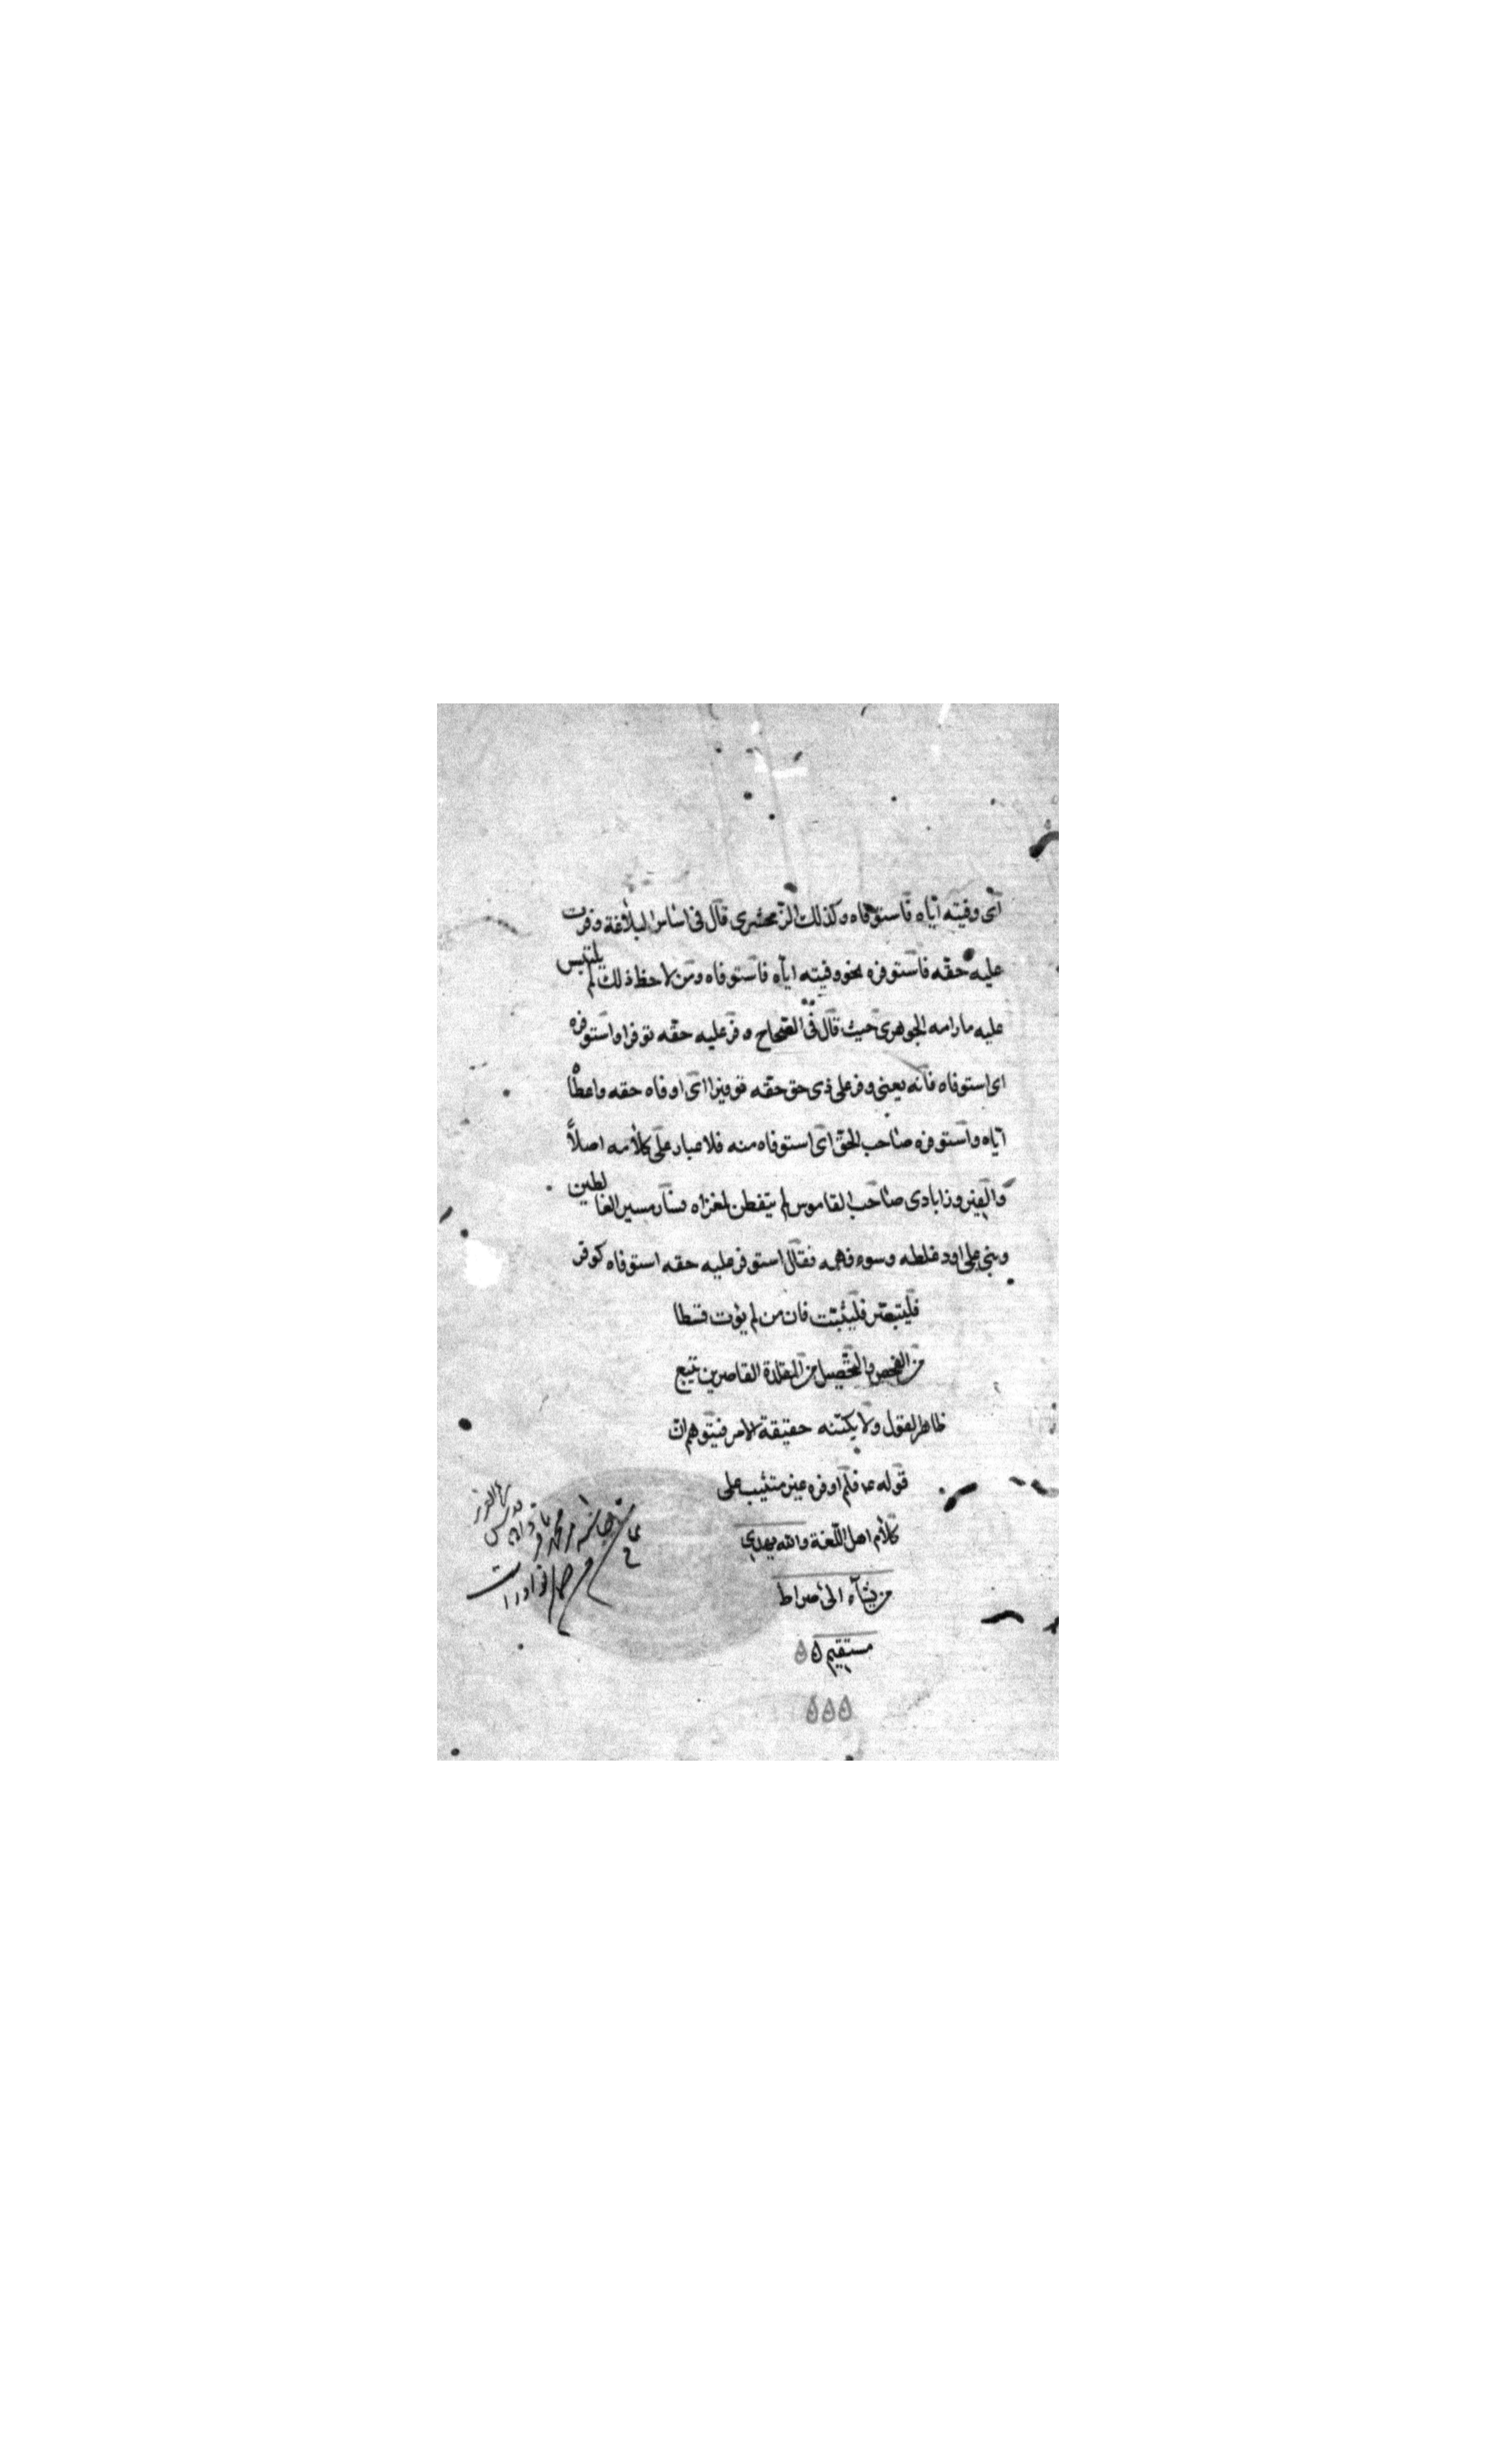 اى وفيته ايّاه فاستوفاه وكذلك الزمخشرى قال فى اساس البلاغة وفرت
عليه حقّه فاستوفره نحو وفيته ايّاه فاستوفاه ومن لاحظ ذلك لم يلتبس
عليه ما رامه الجوهرى حيث قال فى الصّحاح وفر عليه حقّه توفرا واستوفره
اى استوفاه فانّه يعنى وفر على ذى حق حقّه توفيرا اى اوفاه حقه واعطاه
ايّاه واستوفره صاحب الحقّ اى استوفاه منه فلا غبار على كلامه اصلاً
والفيروزابادى صاحب القاموس لم يتفطن لمغزاه وسار مسير الغالطين
وبنى على اود غلطه وسوء فهمه فقال استوفر عليه حقه استوفاه كوفر
فليتبصّر فليثبّت فان من لم يؤت قسطا
من الفحص والتحصيل من المقلدة القاصرين يتبع
ظاهر القول ولا يكتنه حقيقة الامر فيتوهم ان
قوله ع فلم اوفره غير متثيب على
كلام اهل اللّغة والله يهدى
من يشآء الى صراط
مستقيم ۵۵
۵۵۵